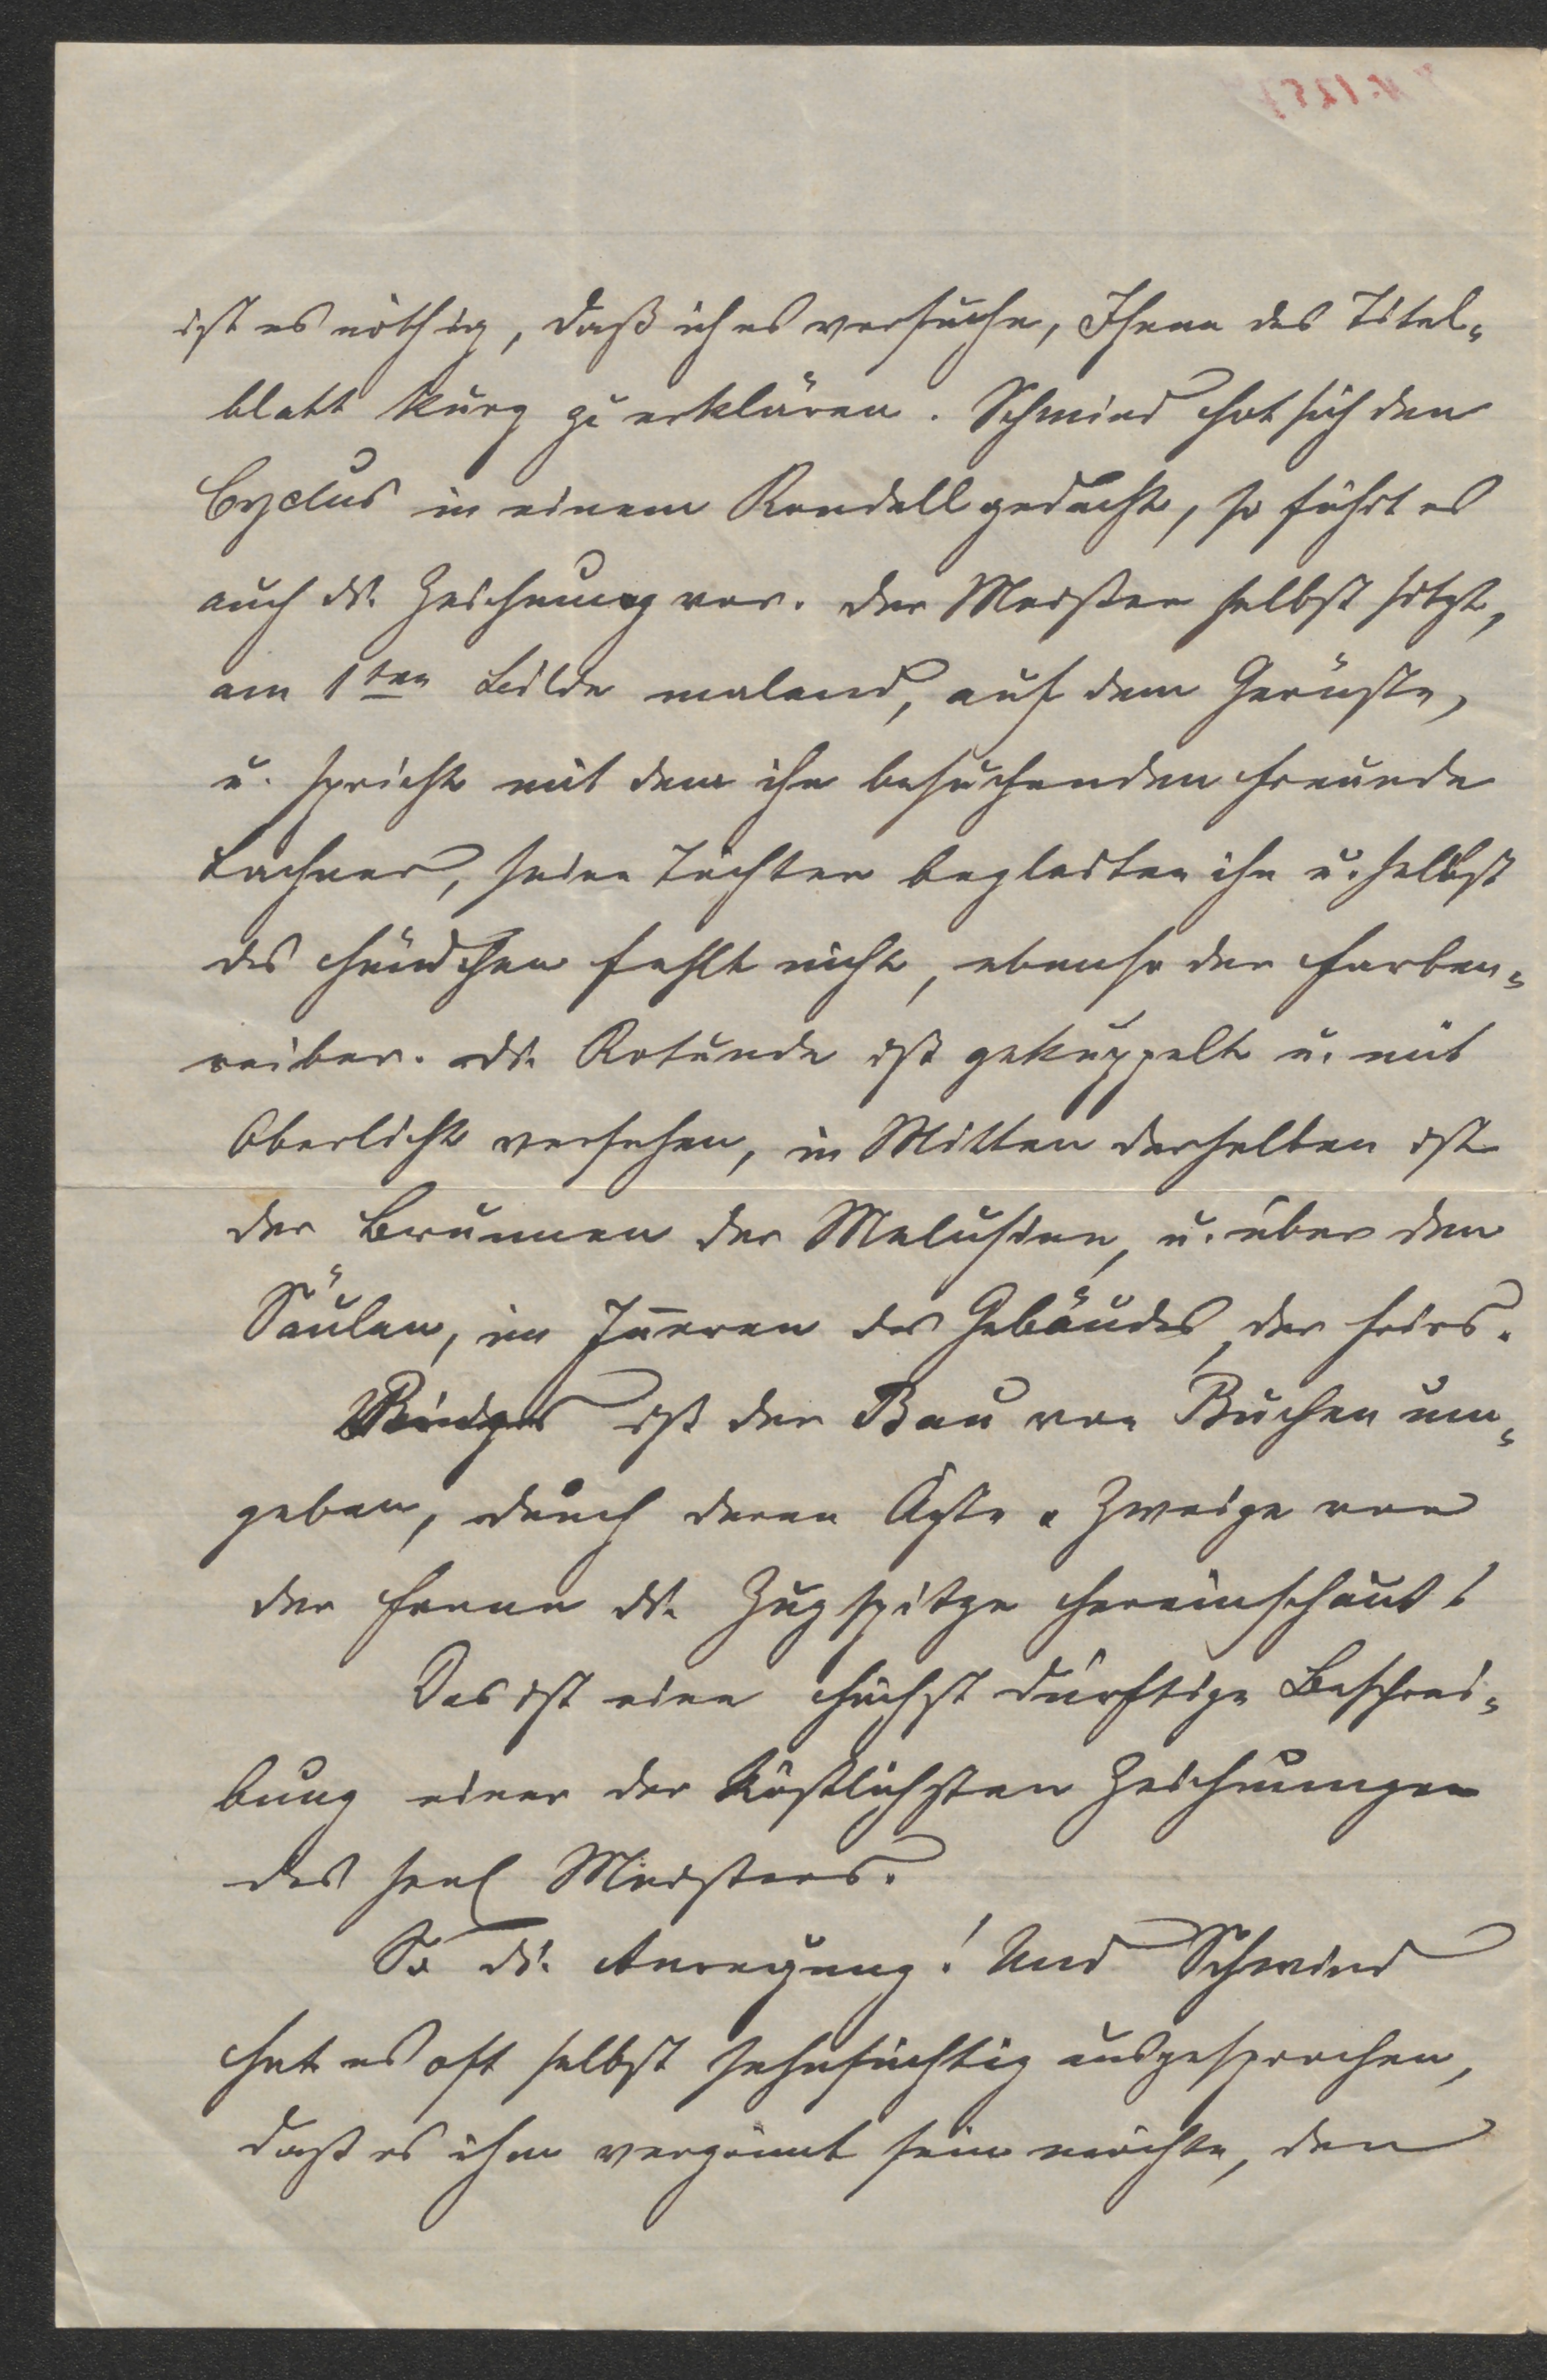 ist es nöthig, daß ich es versuche, Ihnen das Titel-
blatt kurz zu erklären. Schwind hat sich den
Cyclus in einem Rondell gedacht, so führt es
auch die Zeichnung vor. Der Meister selbst sitzt,
am 1ten Bilde malend, auf dem Gerüste,
u. spricht mit dem ihn besuchenden Freunde
Lachner, seine Töchter begleiten ihn u. selbst
das Hündchen fehlt nicht, ebenso der Farben-
reiber. Die Rotunde ist gekuppelt u. mit
Oberlicht versehen, in Mitten derselben ist
der Brunnen der Melusine, u. über den
Säulen, im Inneren des Gebäudes, der Fries.
Rings ist der Bau von Buchen um-
geben, durch deren Äste u Zweige von
der Ferne die Zugspitze hereinschaut!
Das ist eine höchst dürftige Beschrei-
bung einer der köstlichsten Zeichnungen
des seel Meisters.
So die Anregung! Und Schwind
hat es oft selbst sehnsüchtig ausgesprochen,
daß es ihm vergönnt sein möchte, den